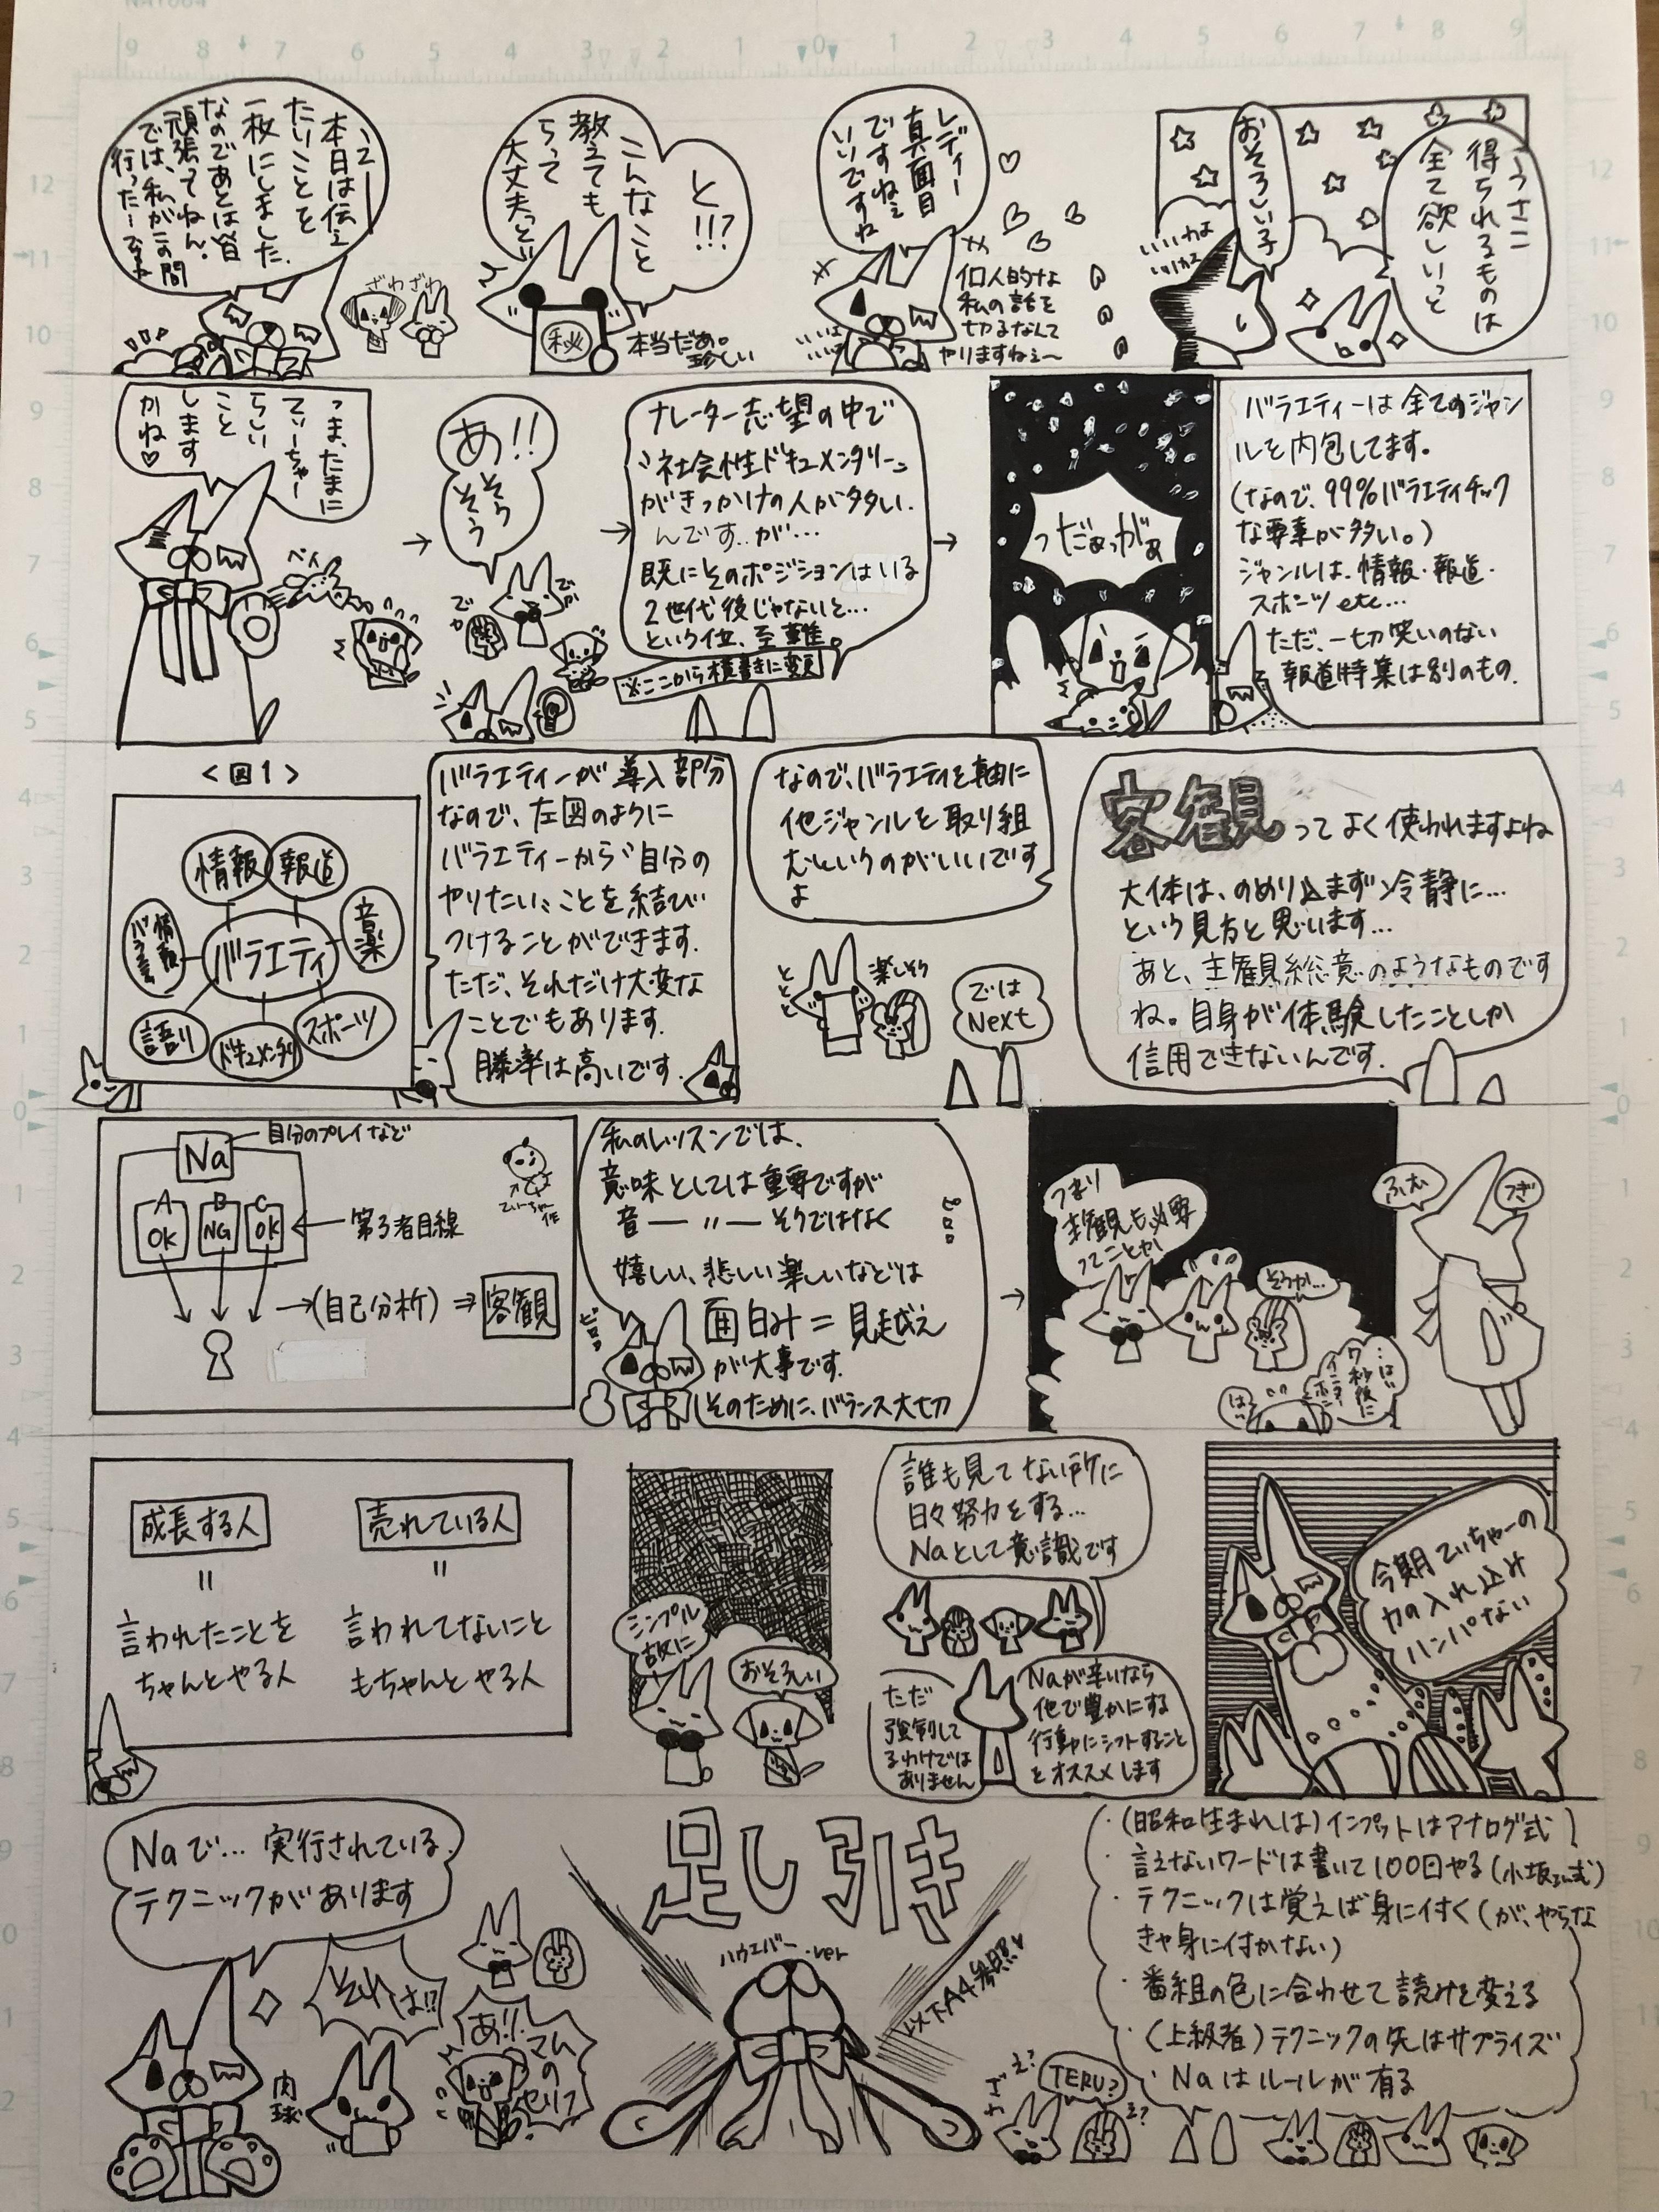 うさこ
得られるものは
全て欲しいっと
おそろしい子
いいカよ
レディー
真面目
ですねぇ
いいですね
個人的な
私の話を
切るなんて
やりますねぇ〜
と!!?
こんなこと
教えても
らって
大丈夫っと!!
秘
本当だぁ。
珍しい
本日は伝え
たいことを
一枚にしました。
なのであとは皆
頑張ってねん。
では、私がこの間
行った
ざわざわ
っま、たまに
てぃーちゃー
らしい
こと
します
かね♡
ペイ
→
あ!!
そう
そう
でか
でか
→
ナレーター志望の中で
〝社会性ドキュメンタリー〟
がきっかけの人が多い
んです‥が…
既にそのポジションはいる
2世代後じゃないと…
という位、至難。
※ここから横書きに変更
→
っだぁっがぁ
バラエティーは全てのジャン
ルを内包してます。
(なので、99%バラエティチック
な要素が多い。)
ジャンルは、情報・報道・
スポーツetc…
ただ、一切笑いのない
報道特集は別のもの.
<図1>
情報
報道
音楽
情報
バラエティ
バラエティ
語り
ドキュメンタリ
スポーツ
バラエティーが導入部分
なので、左図のように
バラエティーから〝自分の
やりたい〟ことを結び
つけることができます.
ただ、それだけ大変な
ことでもあります.
勝率は高いです.
なので、バラエティを軸に
他ジャンルを取り組
むというのがいいです
よ
楽しそう
では
Next
客観ってよく使われますよね
大体は、のめり込まず冷静に…
という見方と思います…
あと、主観総意のようなものです
ね。自身が体験したことしか
信用できないんです.
Na
自分のプレイなど
A
OK
B
NG
C
OK
←第3者目線
てぃーちゃー
作
→(自己分析)⇒客観
私のレッスンでは、
意味としては重要ですが
音―〃―そうではなく
嬉しい、悲しい楽しいなどは
面白み=見栄え
が大事です.
そのために、バランス大切
→
つまり
主観も必要
ってことか
そうか…
…はい
ワ秒後に
は
ふむ
つぎ
成長する人
=
言われたことを
ちゃんとやる人
売れている人
=
言われてないこと
もちゃんとやる人
シンプル
故に
おそろしい
誰も見てない所に
日々努力をする…
Naとして意識です
ただ
強制して
るわけでは
ありません
Naが辛いなら
他で豊かにする
行動にシフトすること
をオススメします
今期てぃちゃーの
力の入れ込み
ハンパない
Naで…実行されている
テクニックがあります
それは!!
あ!!
マムの
セリフ
肉球
足し引き
ハウエバー・ver
以下A4参照♡
・(昭和生まれは)インプットはアナログ式
・言えないワードは書いて100日やる(小坂さん式)
・テクニックは覚えば身に付く(が、やらな
きゃ身に付かない)
・番組の色に合わせて読みを変える
・(上級者)テクニックの先はサプライズ
・Naはルールが有る
え?
TERU?
え?